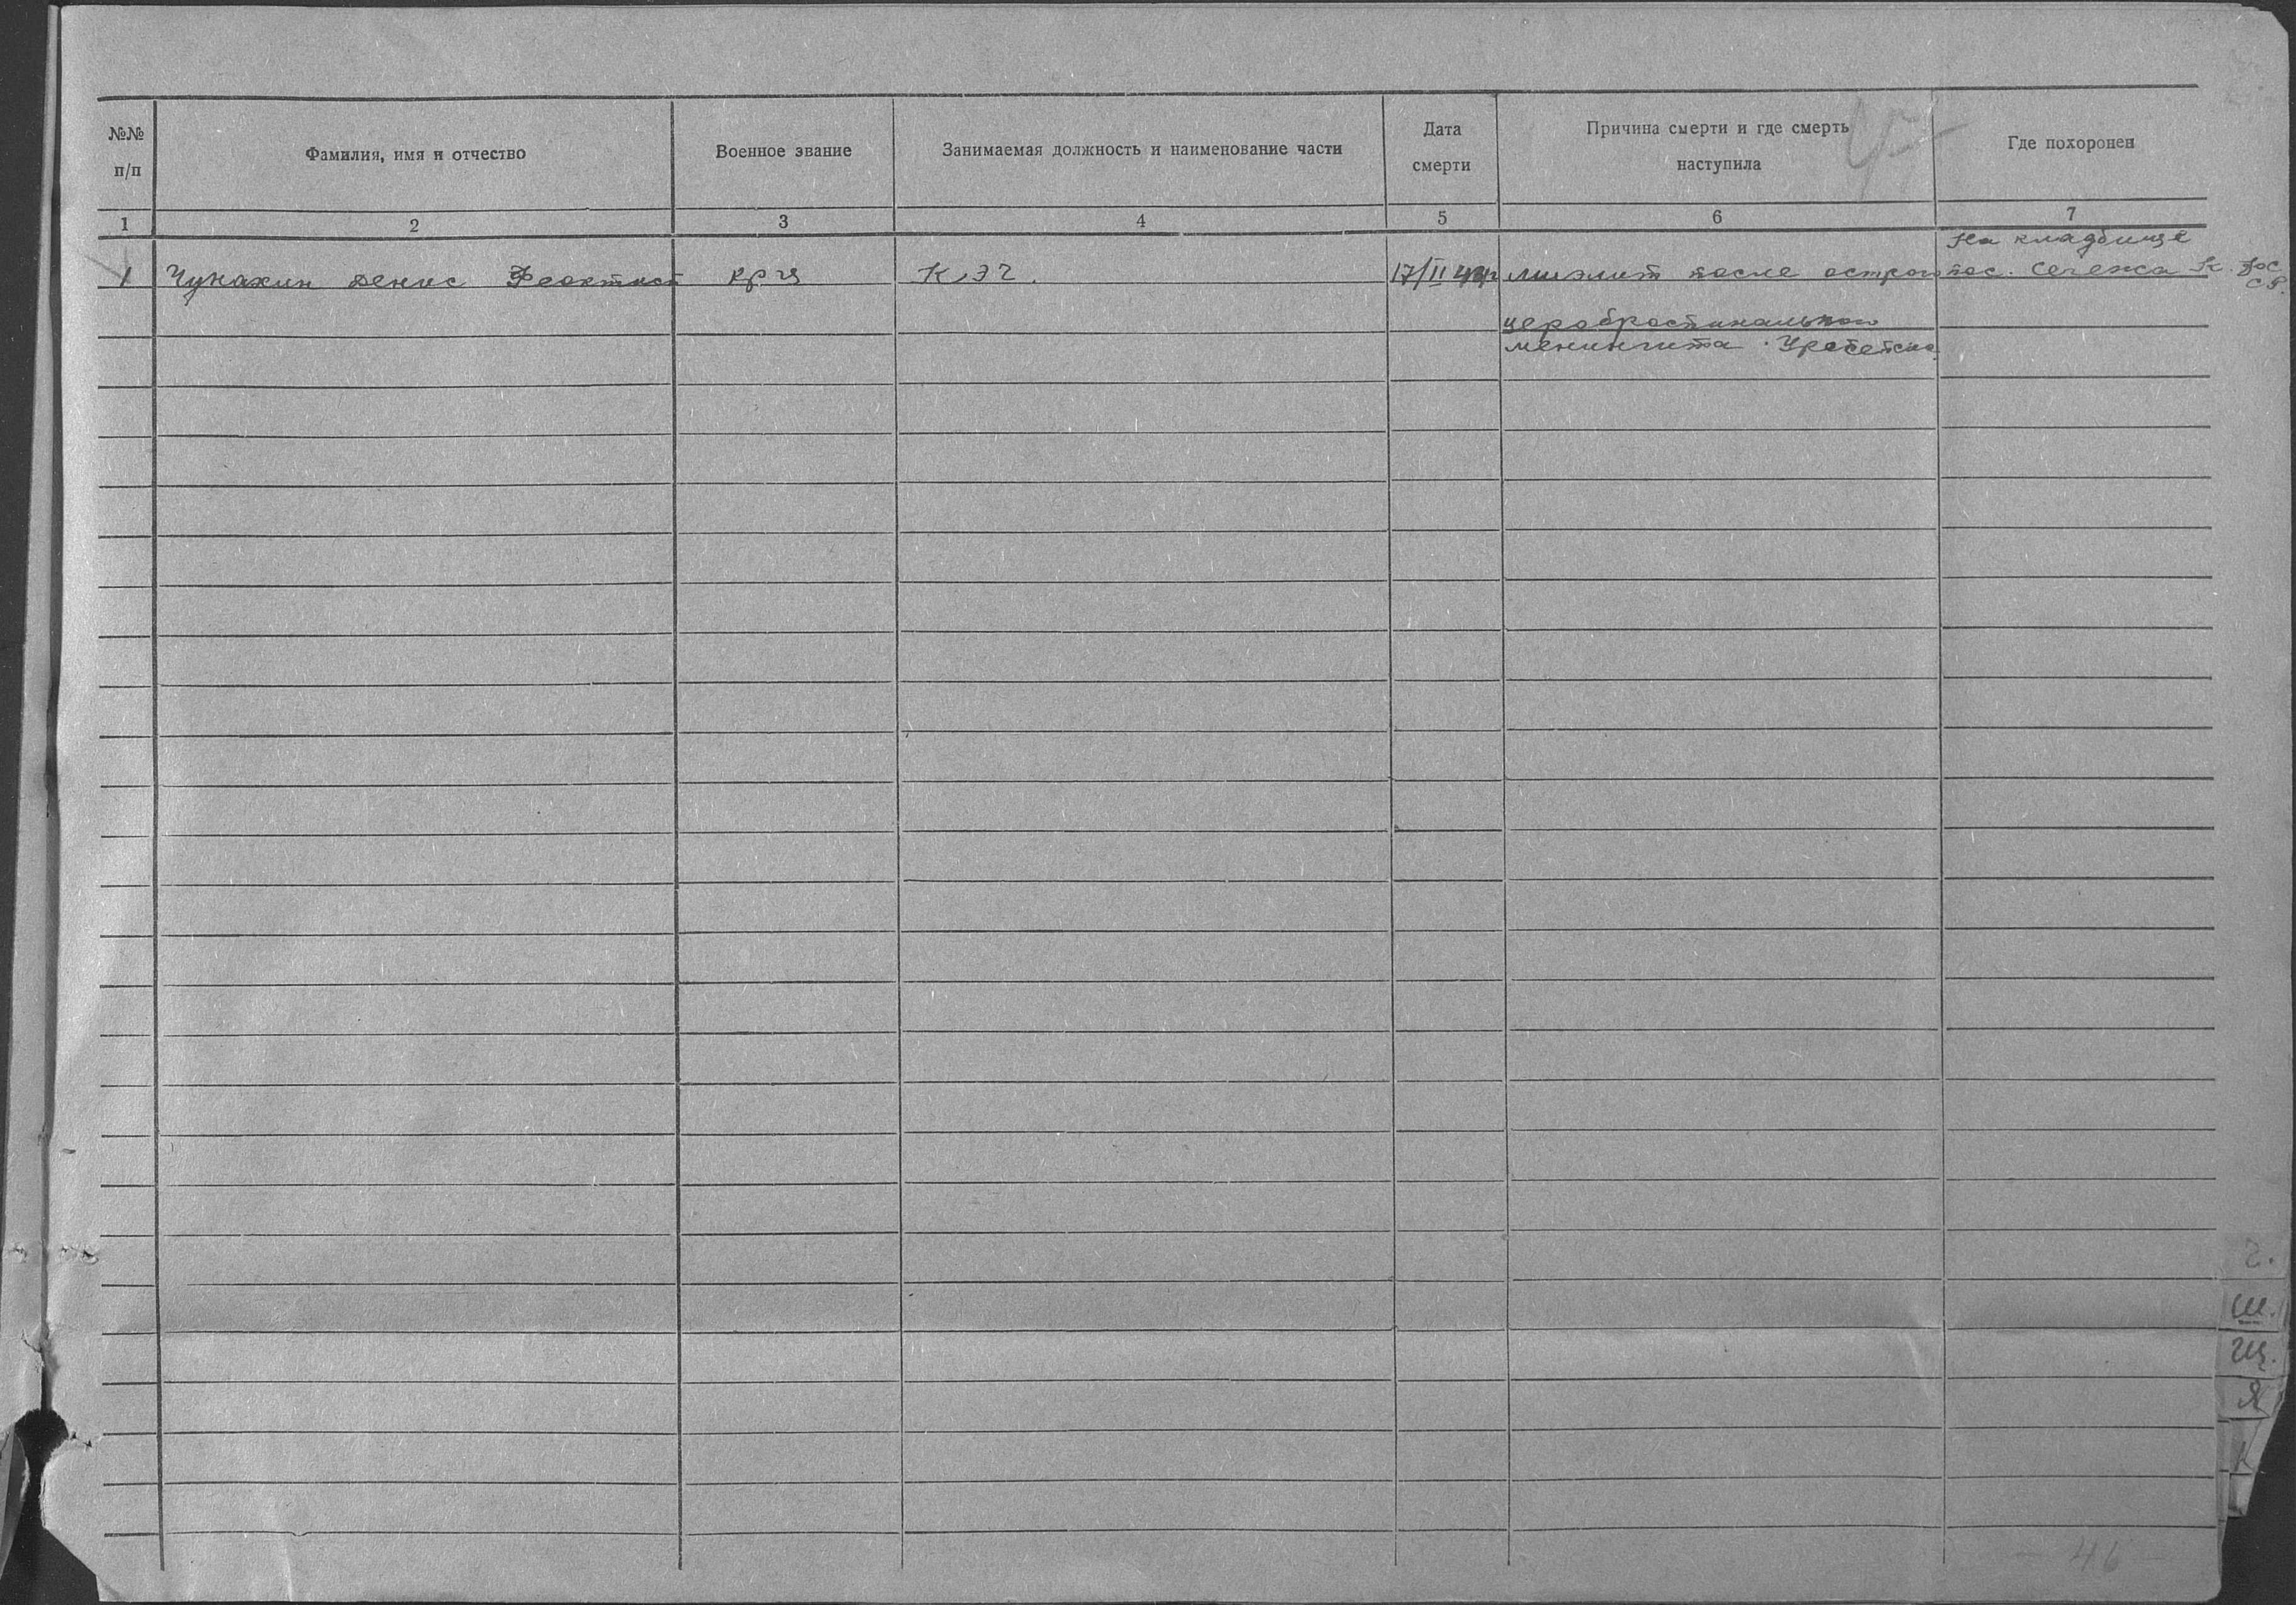 №№ п/п
Фамилия, имя и отчество
Военное звание
Занимаемая должность и наименование части
Дата смерти
Причина смерти и где смерть наступила
Где похоронен
1 2 3 4 5 6 7
На кладбище
1 Чунахин Денис Феоктист кр-ц КЭЧ. 17/II 44г Миэлит после острого пос. Сегежа К-Ф С
СР.
цероброспинального
менингита.
Ш.
Щ.
Я
К
46